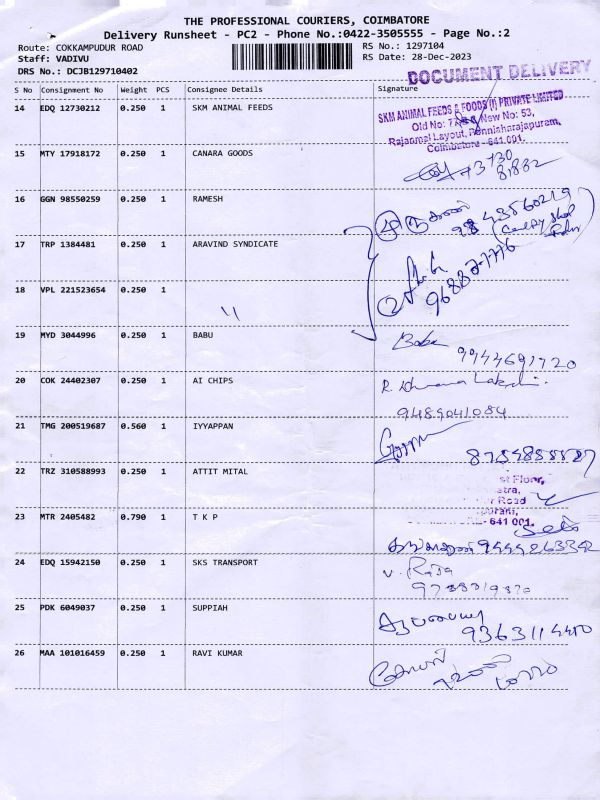 THE PROFESSIONAL COURIERS, COIMBATORE
Delivery Runsheet - PC2 - Phone No.:0422-3505555 - Page No.:2
Route: COKKAMPUDUR ROAD RS No.: 1297104
Staff: VADIVU RS Date: 28-Dec-2023
DRS No.: DCJB129710402
DOCUMENT DELIVERY
S No Consignment No Weight PCS Consignee Details Signature
14 EDQ 12730212 0.250 1 SKM ANIMAL FEEDS
SKM ANIMAL FEEDS & FOODS (I) PRIVATE LIMITED
Old No: New No: 53,
Rajanmal Layout, Ponniaharajapuram,
Coimbatore - 641 001.
15 MTY 17918172 0.250 1 CANARA GOODS
73730
81882
16 GGN 98550259 0.250 1 RAMESH
9843560219
17 TRP 1384481 0.250 1 ARAVIND SYNDICATE
18 VPL 221523654 0.250 1 \\
19 MYD 3044996 0.250 1 BABU
Babu
9944691720
20 COK 24402307 0.250 1 AI CHIPS
9489041084
21 TMG 200519687 0.560 1 IYYAPPAN
22 TRZ 310588993 0.250 1 ATTIT MITAL
st Floor,
Road
641 001.
23 MTR 2405482 0.790 1 T K P
9444263342
24 EDQ 15942150 0.250 1 SKS TRANSPORT
V. Raja
25 PDK 6049037 0.250 1 SUPPIAH
9363114410
26 MAA 101016459 0.250 1 RAVI KUMAR